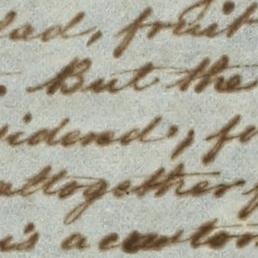 lad, fruit
. But the
idered, fu
altogether f
is a custom